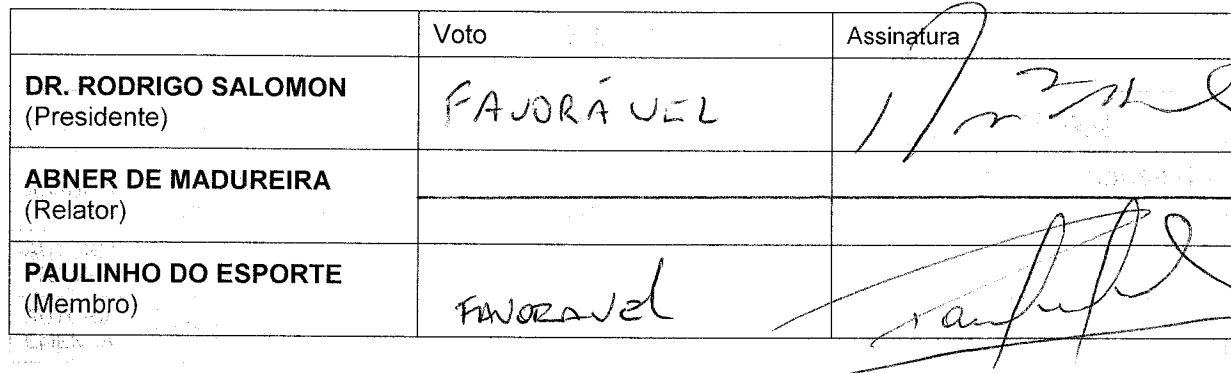 Voto Assinatura
DR. RODRIGO SALOMON
(Presidente) FAVORÁVEL
ABNER DE MADUREIRA
(Relator)
PAULINHO DO ESPORTE
(Membro) FAVORAVEL